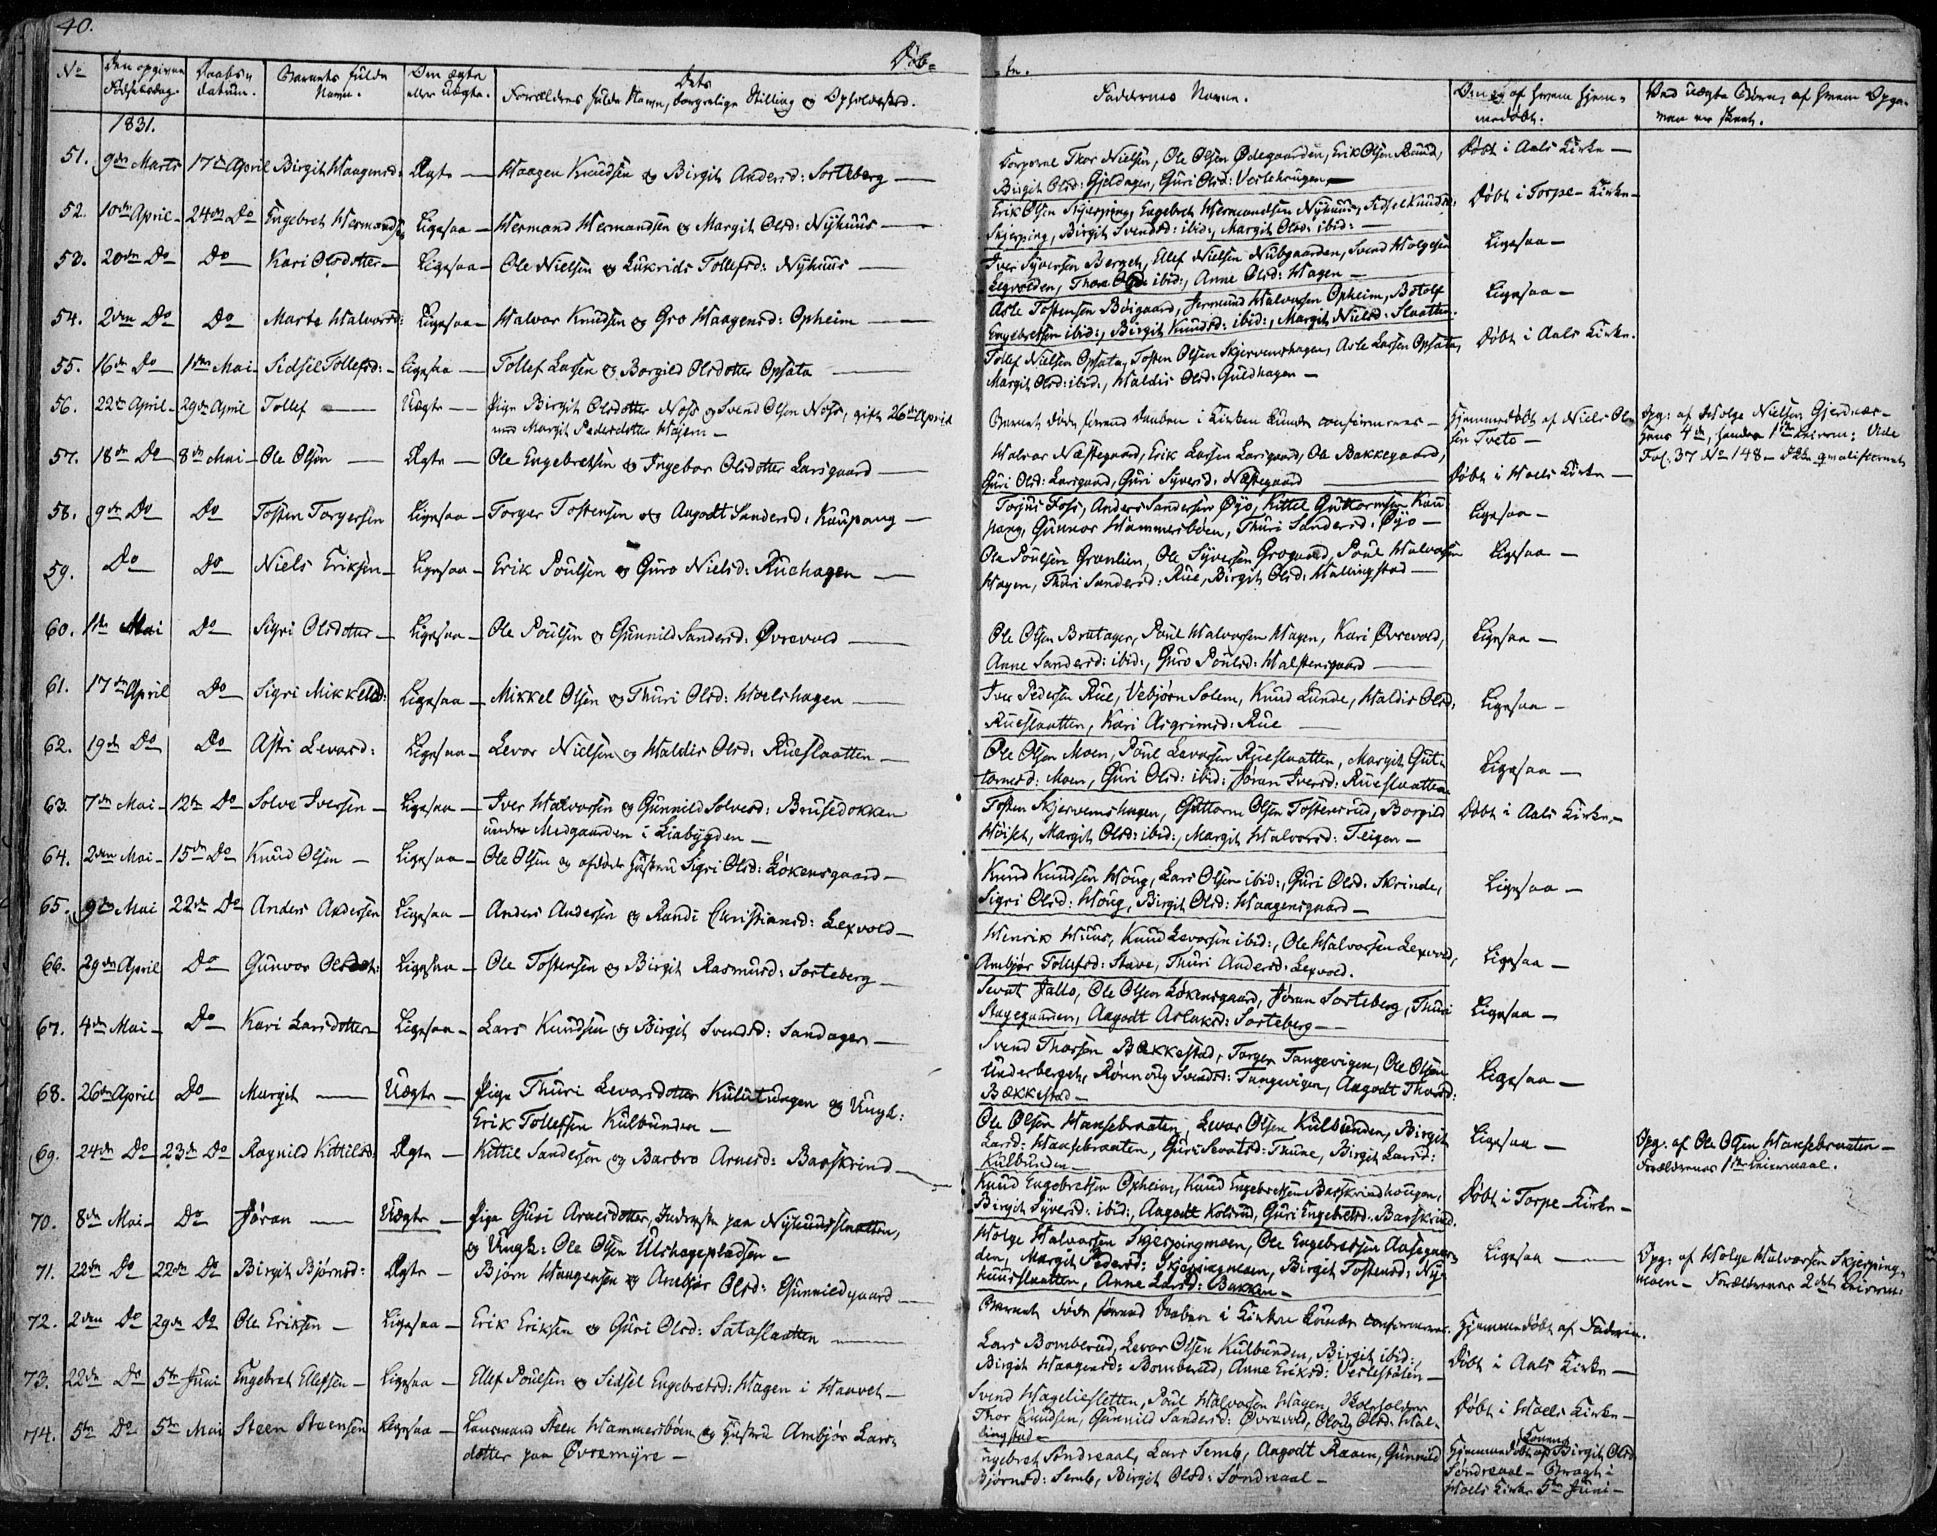 40.
Døb=
te.
No
Den opgivne Fødselsdag.
Daabs= datum.
Barnets fulde Navn.
Om ægte eller uægte.
Dets Forældres fulde Navn, borgerlige Stilling og Opholdssted.
Faddernes Navne.
1831.
51. 9de Marts 17de April Birgit Haagensd: Ægte — Haagen Knudsen og Birgit Andersd: Sorteberg —
Corporal Thor Nielsen, Ole Olsen Ødegaarden, Erik Olsen Ruud, Døbt i Aals Kirke —
Birgit Olsd: Gjeldagen, Guri Olsd: Vestehougen —
52. 10de April 24de Do Engebret Hermandsen Ligesaa — Hermand Hermandsen og Margit Olsd: Nyhuus —
Erik Olsen Skjerping, Engebret Hermandsen Nyhuus, Sidsel Knudsd: Døbt i Torpe Kirke —
Skjerping, Birgit Svendsd: ibid:, Margit Olsd: ibid: —
53. 20de Do Do Kari Olsdotter — Ligesaa — Ole Nielsen og Tollefsd: Nyhuus —
Iver Syversen Berget, Ellef Nielsen Svend Helgesen Ligesaa —
Thora ibid:, Anne Olsd: Hagen —
54. 2den Do Do Marte Halvorsd: Ligesaa — Halvor Knudsen og Gro Haagensd: Opheim —
Asle Tostensen Bøigaard, Halvorsen Opheim, Botolf Ligesaa —
Engebretsen ibid:, Birgit Knudsd: ibid:, Margit Nielsd: Slaatten.
55. 16de Do 1ste Mai Sidsel Tollefsd: — Ligesaa — Tollef Larsen og Borgild Olsdotter Opsata —
Tollef Nielsen Opsata, Tosten Olsen Skjervemshagen, Asle Larsen Opsata, Døbt i Aals Kirke.
Margit Olsd: ibid:, Haldis Olsd: Guldhagen —
56. 22de April 29de April Tollef — Uægte — Pige Birgit Olsdotter Noss og Svend Olsen Noss, gift 26de April
med Margit Pedersdotter Hajem —
Barnet døde førend Daaben i Kirken kunde confirmeres — Hjemmedøbt af Niels Olsen Tveto —
Opg: af Helge Nielsen
Fol. 37 No 148 —
57. 18de Do 8de Mai Ole Olsen — Ægte — Ole Engebretsen og Ingebor Olsdotter Larsgaard —
Halvor Næstegaard, Erik Larsen Larsgaard, Ole Bakkegaard, Døbt i Hoels Kirke —
Guri Olsd: Larsgaard, Guri Syversd: Næstegaard —
58. 9de Do Do Tosten Torgersen Ligesaa — Torger Tostensen og Aagodt Sandersd: Kaupang —
Foss, Anders Sandersen Øyo, Kittel Guttormsen Kau= Ligesaa —
pang, Gunnor Hammersbøen, Thuri Sandersd: Øyo —
59. Do Do Niels Eriksen — Ligesaa — Erik Poulsen og Guro Nielsd: Ruehagen —
Ole Poulsen Grønlien, Ole Syversen Grogaard, Poul Halvorsen Ligesaa —
Hagen, Thuri Sandersd: Rue, Birgit Olsd: Hallingstad —
60. 1ste Mai Do Sigri Olsdotter — Ligesaa — Ole Poulsen og Gunnild Sandersd: Øvrevold —
Ole Olsen Brataager, Poul Halvorsen Hagen, Kari Øvrevold, Ligesaa —
Anne Sandersd: ibid:, Guro Poulsd: Halstensgaard —
61. 17de April Do Sigri Mikkelsd: Ligesaa — Mikkel Olsen og Thuri Olsd: Hoelshagen —
Iver Pedersen Rue, Vebjørn Solem, Knud Lunde, Haldis Olsd: Ligesaa —
Rueslaatten, Kari Asgrimsd: Rue —
62. 19de Do Do Astri Levorsd: Ligesaa — Levor Nielsen og Haldis Olsd: Rueslaatten —
Ole Olsen Moen, Poul Levorsen Rueslaatten, Margit Gut= Ligesaa —
tormsd: Moen, Guri Olsd: ibid: Jøran Iversd: Rueslaatten
63. 7de Mai 12te Do Solve Iversen — Ligesaa — Iver Halvorsen og Gunnild Solvesd: Brusedokken
under Medgaarden i Liabygden —
Tosten Skjervemshagen, Guttorm Olsen Tostensrud, Borgild Døbt i Aals Kirke —
Hoiset, Margit Olsd: ibid:, Margit Halvorsd: Teigen —
64. 2den Mai 15de Do Knud Olsen — Ligesaa — Ole Olsen og afdøde Hustru Sigri Olsd: Løkensgaard —
Knud Knudsen Houg, Lars Olsen ibid:, Guri Olsd: Skrinde, Ligesaa —
Sigri Olsd: Houg, Birgit Olsd: Haagensgaard —
65. 9de Mai 22de Do Anders Andersen Ligesaa — Anders Andersen og Randi Christiansd: Lexvold —
Henrik Huus, Knud Levorsen ibid:, Ole Halvorsen Lexvold, Ligesaa —
Ambjør Tollefsd: Stave, Thuri Andersd: Lexvold.
66. 29de April Do Gunvor Olsdot: Ligesaa — Ole Tostensen og Birgit Rasmusd: Sorteberg —
Sevat Jallo, Ole Olsen Løkensgaard, Jøran Sorteberg, Thuri Ligesaa —
Stagegaarden, Aagodt Aslaksd: Sorteberg —
67. 4de Mai Do Kari Larsdotter Ligesaa — Lars Knudsen og Birgit Svendsd: Sandager —
Svend Thorsen Bækkestad, Torger Tangevigen, Ole Olsen Ligesaa —
Underberget, Rønnoug Svendsd: Tangevigen, Aagodt Thorsd:
Bækkestad —
68. 26de April Do Margit — Uægte — Pige Thuri Levorsdotter Kulutvagen og Ungk:
Erik Tollefsen Kulbunden —
Ole Olsen Hansebraaten, Levor Olsen Kulbunden, Birgit Ligesaa — Opg. af Ole Olsen Hansebraaten —
Larsd: Hansebraaten, Guri Sevatsd: Thune, Birgit Larsd: Forældrenes 1ste Leiermaal.
Kulbunden —
69. 24de Do 23de Do Ragnild Kittilsd: Ægte — Kittil Sandersen og Barbro Arnesd: Barskrind —
Knud Engebretsen Opheim, Knud Engebretsen Barskrindhougen, Døbt i Torpe Kirke —
Birgit Syversd: ibid:, Aagodt Kolsrud, Guri Engebretsd: Barskrind.
70. 8de Mai Do Jøran — Uægte — Pige Guri Arnesdotter, Inderste paa Nyhuusslaatten,
og Ungk: Ole Olsen Ulshagepladsen —
Helge Halvorsen Skjerpingmoen, Ole Engebretsen Ligesaa — Opg: af Helge Halvorsen Skjerping=
den, Margit Pedersd: Skjerpingmoen, Birgit Tostensd: Ny= moen — Forældrenes 2det Leierm:
huusslaatten, Anne Larsd: Bakken —
71. 22de Do 22de Do Birgit Bjørnsd: Ægte — Bjørn Haagensen og Ambjør Olsd: Gunnildgaard —
72. 2den Do 29de Do Ole Eriksen — Ligesaa — Erik Eriksen og Guri Olsd: Sataslaatten —
Barnet døde førend Daaben i Kirken kunde confirmeres. Hjemmedøbt af Faderen.
Lars Bomberud, Levor Olsen Kulbunden, Birgit ibid:, Døbt i Aals Kirke —
Birgit Haagensd: Bomberud, Anne Eriksd: Vestestølen —
73. 22de Do 5te Juni Engebret Ellefsen — Ligesaa — Ellef Poulsen og Sidsel Engebretsd: Hagen i Haavet —
Svend Hagaliesletten, Poul Halvorsen Hagen, Skoleholder Døbt i Hoels Kirke —
Thor Knudsen, Gunnild Sandersd: Øvrevold, Olsd: Hal=
lingstad —
74. 5te Do 5te Mai Steen Steensen Ligesaa — Lensmand Steen Hammersbøen og Hustru Ambjør Lars=
dotter paa Øvremyre —
Engebret Søndreaal, Lars Semb, Aagodt Raaen, Gunnild Hjemmedøbt af Birgit Olsd:
Bjørnsd: Semb, Birgit Olsd: Søndreaal — Søndreaal — Bragt i
Hoels Kirke 5te Juni —